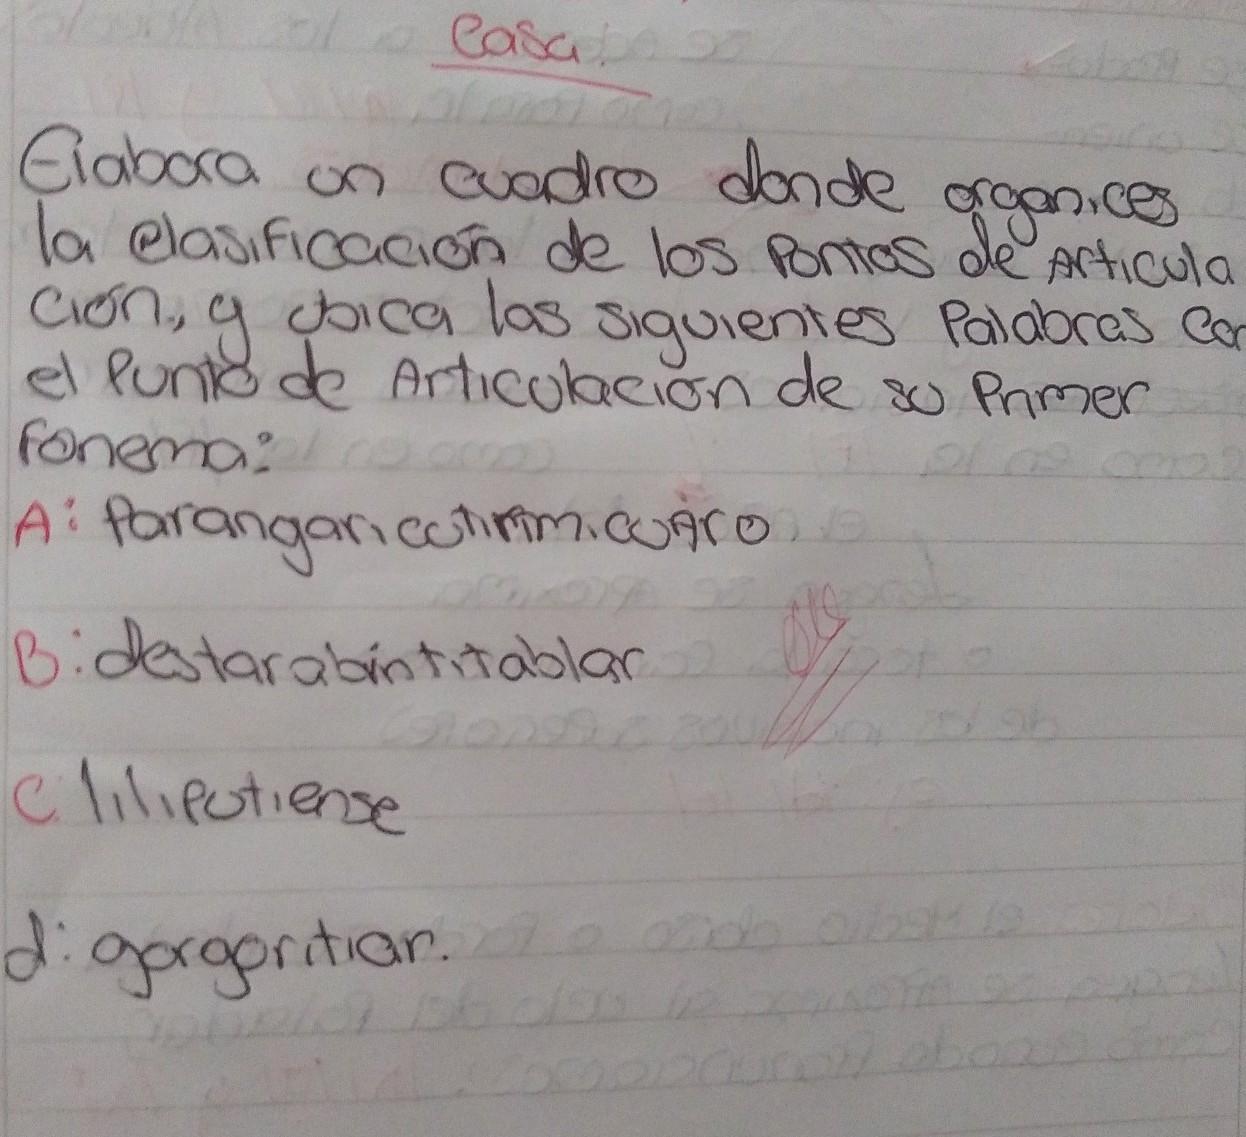 Casa.
Elabora un cuadro donde organices
la clasificación de los Pontos de Articula
ción, y ubica las siguientes Palabras con
el Punto de Articulación de su Primer
fonema:
A: Parangaricutirimicuaro
B: destarabintitablar
C. liliputiense
d: gorgoritiar.